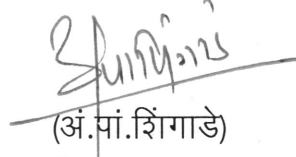 (अं.पां.शिंगाडे)